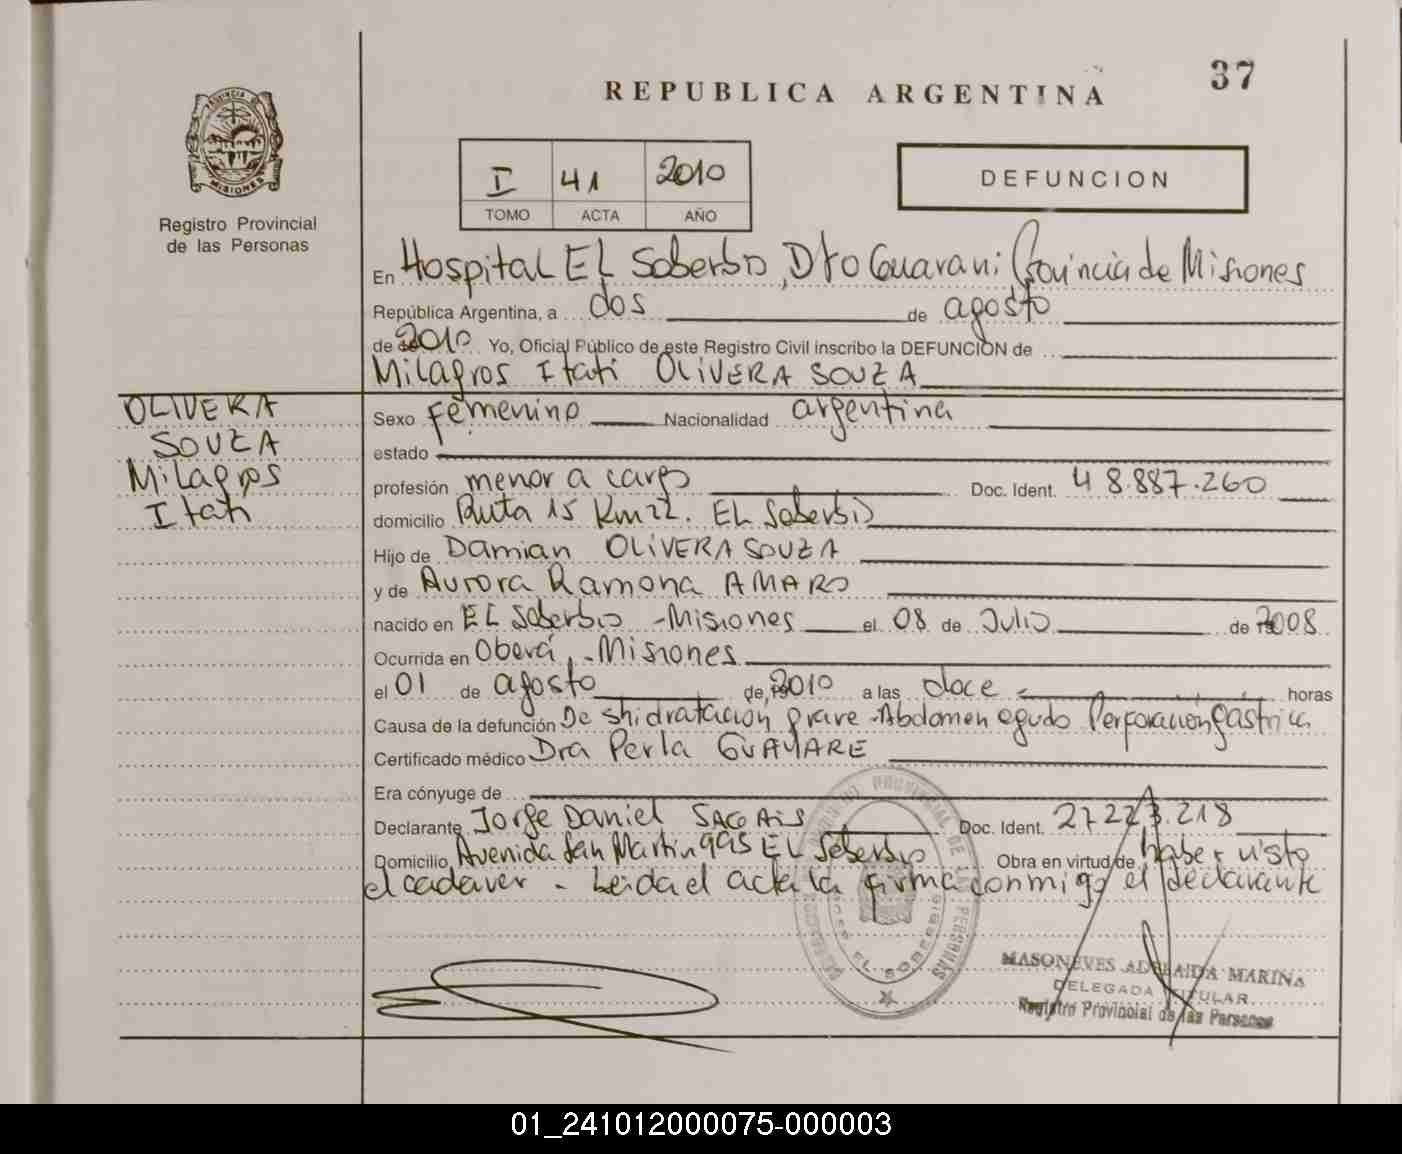 37
REPUBLICA ARGENTINA
PROVINCIA DE
MISIONES
Registro Provincial
de las Personas
I 41 2010
TOMO ACTA AÑO
DEFUNCION
En Hospital EL Soberbio, Dto Guarani Provincia de Misiones
República Argentina, a dos de agosto
de 2010 Yo, Oficial Público de este Registro Civil inscribo la DEFUNCIÓN de
Milagros Itati OLIVERA SOUZA
OLIVERA
SOUZA
Milagros
Itati
Sexo femenino Nacionalidad argentina
estado
profesión menor a cargo Doc. Ident. 48.887.260
domicilio Ruta 15 Km 22. EL Soberbio
Hijo de Damian OLIVERA SOUZA
y de Aurora Ramona AMARO
nacido en EL Soberbio - Misiones el 08 de Julio de 2008
Ocurrida en Oberá, - Misiones
el 01 de agosto de 2010 a las doce horas
Causa de la defunción Deshidratación grave - Abdomen agudo Perforación gastrica
Certificado médico Dra Perla
Era cónyuge de
Declarante Jorge Daniel Doc. Ident. 27.223.218
Domicilio Avenida San Martin 995 EL Soberbio Obra en virtud de haber visto
el cadaver - Leida el acta la firma conmigo el declarante
PROVINCIAL DE LAS PERSONAS
EL SOBERBIO
MASONEVES ADELAIDA MARINA
DELEGADA TITULAR
Registro Provincial de las Personas
01_241012000075-000003